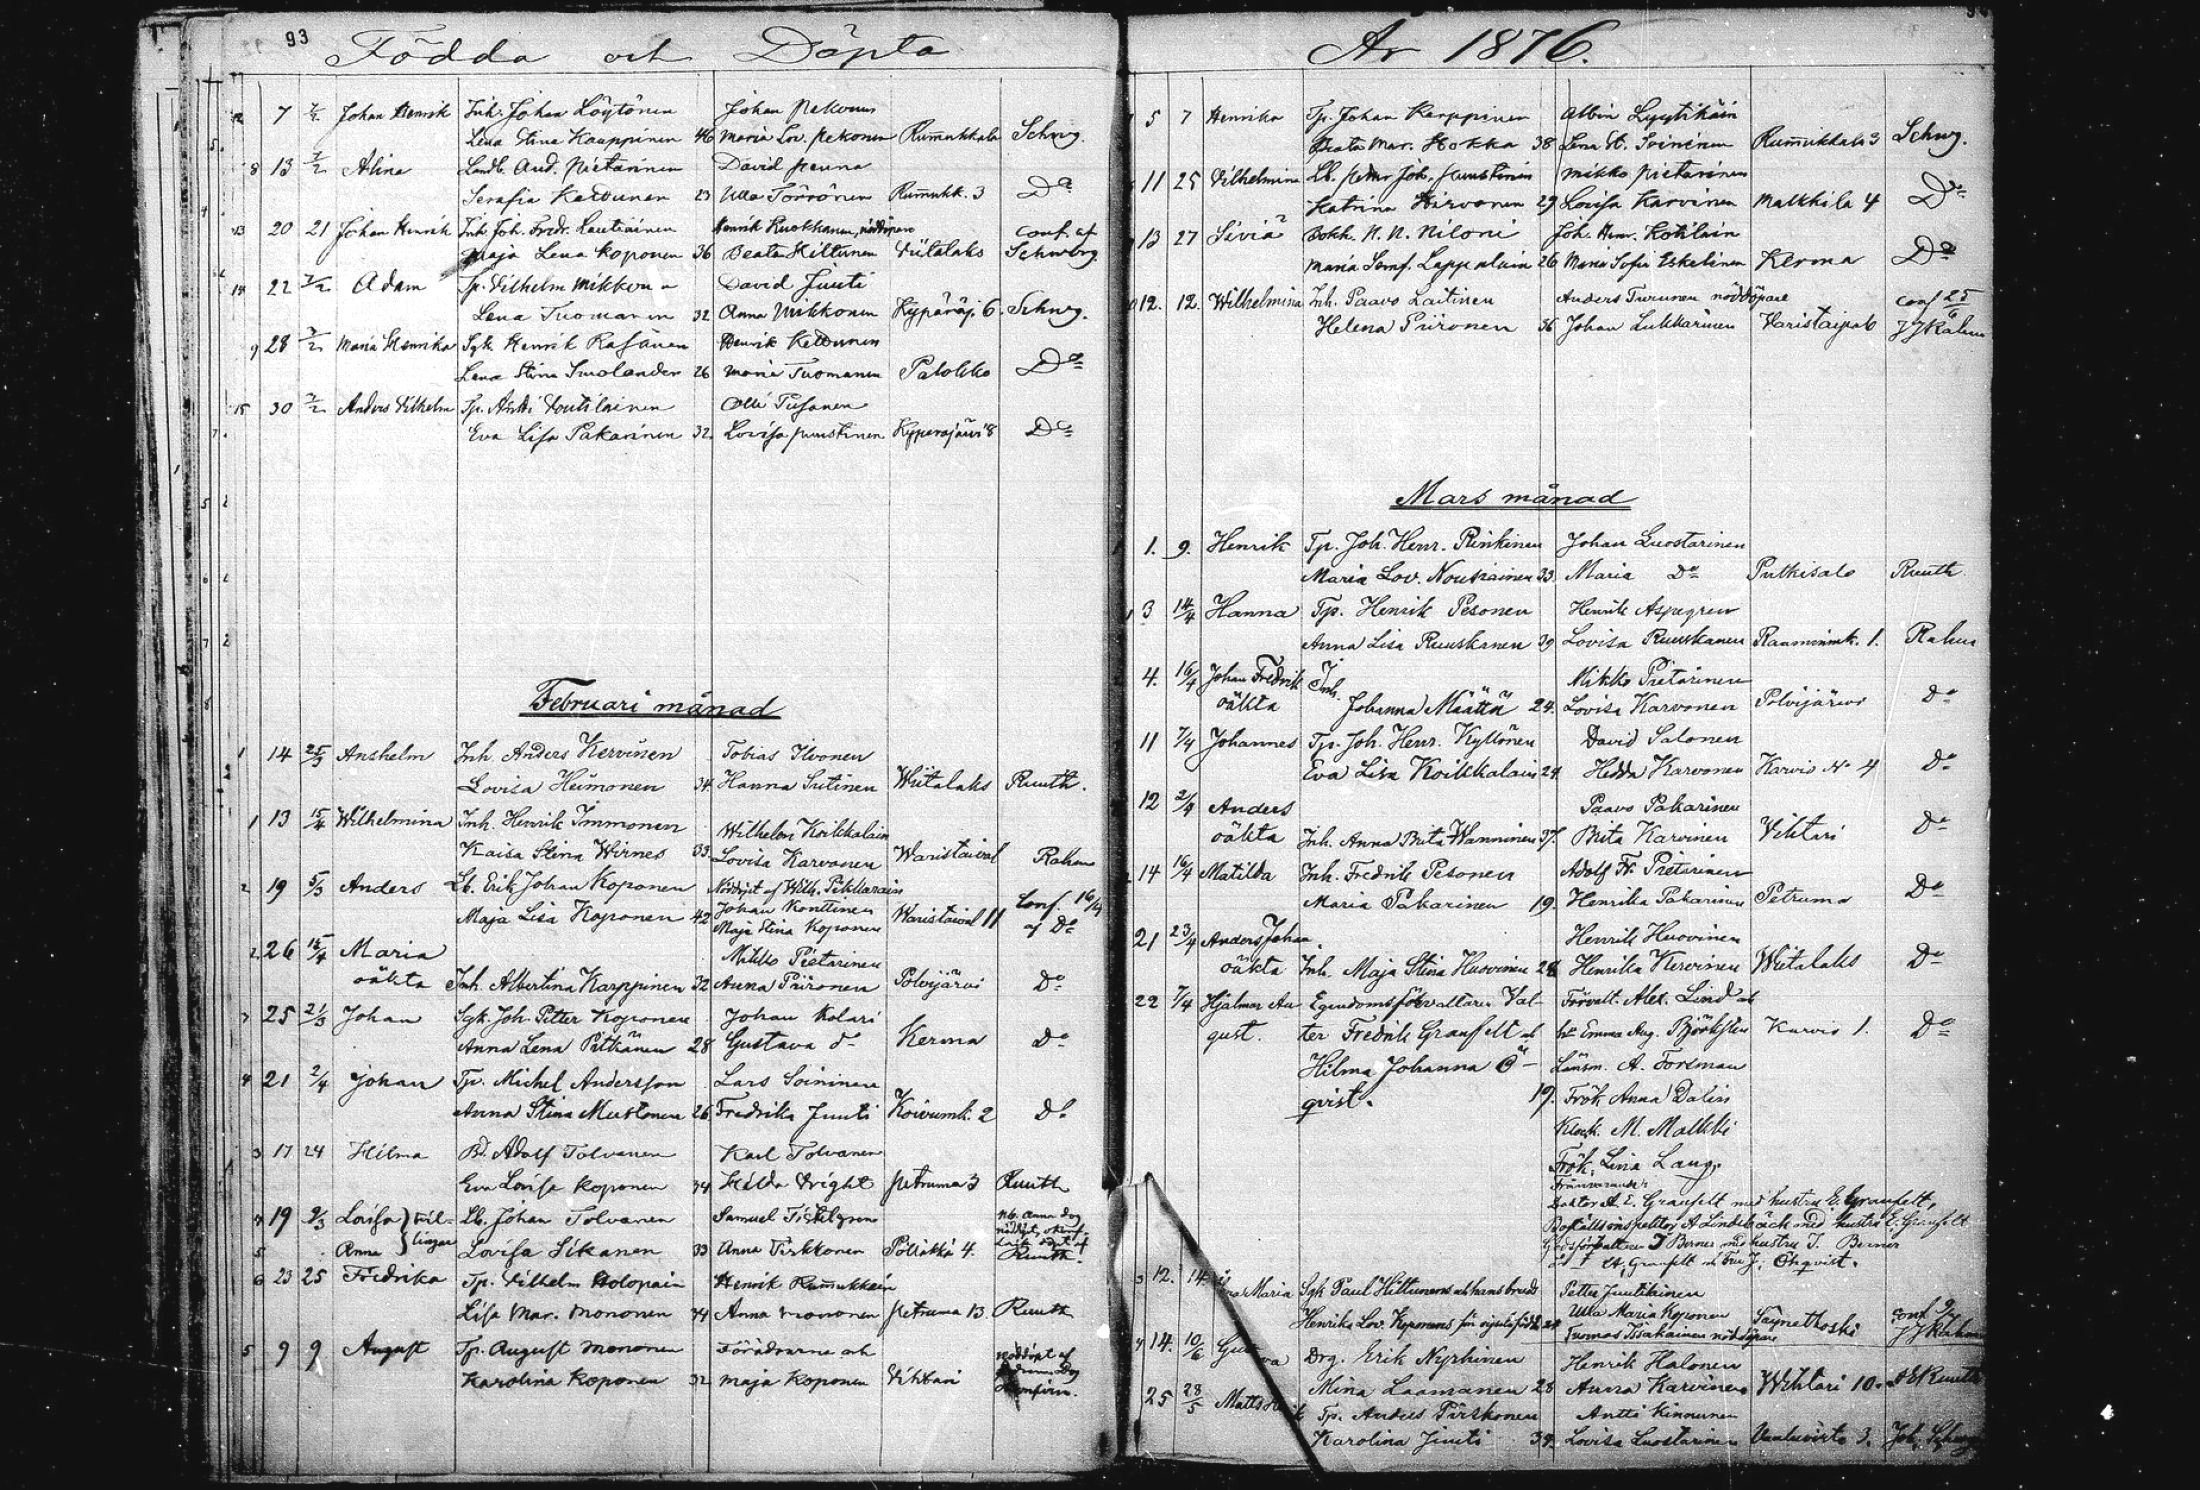 93
Födda och Döpta
12 7 7/2 Johan Henrik Inh. Johan Löytönen Johan Pekonen
Lena Stina Kauppinen 46 Maria Lov. Pekonen Rumukkala Schwg.
8 13 7/2 Alina Landb. And. Pietarinen David
Serafia Kettunen 23 Ulla Törrönen Rumukk. 3 Do
13 20 21 Johan Henrik Inh. Joh. Fredr. Lautiainen Henrik Ruokkanen, nöddöpare conf. af
Maja Lena Koponen 36 Beata Hiltunen Viitalaks Schwbrg.
14 22 7/2 Adam Tp. Vilhelm Mikkonen David Juuti
Lena Tuomanen 32 Anna Mikkonen Kypäräj. 6. Schwg.
9 28 7/2 Maria Henrika Sgk. Henrik Räsänen Henrik Kettunen
Lena Stina Smolander 26 Maria Tuomanen Palokko Do
15 30 7/2 Anders Vilhelm Tp. Antti Voutilainen Olli Tusanen
Eva Lisa Pakarinen 32. Lovisa Puustinen Kyperäjärvi 8 Do
Februari månad
1 14 25/3 Anshelm Inh Anders Kervinen Tobias Ilvonen
Lovisa Heimonen 34. Hanna Sutinen Wiitalaks Ruuth.
1 13 15/4 Wilhelmina Inh. Henrik Immonen Wilhelm Koikkalain
Kaisa Stina Wirnes 33. Lovisa Karvonen Waristaival Rahm
2 19 5/3 Anders Lb. Erik Johan Koponen Nöddöpt af Wilh. Pikkarain
Maja Lisa Koponen 42 Johan Konttinen Waristaival 11 Conf. 16/4
Maja Stina Koponen af Do
2 26 15/4 Maria Mikko Pietarinen
oäkta Inh. Albertina Karppinen 32 Anna Piironen Polvijärvi Do
3 25 21/3 Johan Sgk. Joh. Petter Koponen Johan Kolari
Anna Lena Pitkänen 28 Gustava do Kerma Do
4 21 2/4 Johan Tp. Michel Andersson Lars Soininen
Anna Stina Mustonen 26 Fredrika Juuti Koivumk. 2 Do
3 17 24 Hilma Bd. Adolf Tolvanen Karl Tolvanen
Eva Lovisa Koponen 44 Hilda Wright Petruma 3 Ruuth
4 19 9/3 Lovisa } tvil- Lb. Johan Tolvanen Samuel Tistelgren Nb. Anna dog
5 Anna } lingar Lovisa Sikanen 33 Anna Pirkkonen Pöllökkä 4. Ruuth.
6 23 25 Fredrika Tp. Vilhelm Holopain Henrik Rumukkain
Lisa Mar. Mononen 44 Anna Mononen Petruma 13 Ruuth
5 9 9 August Tp. August Mononen Föräldrarne och Nöddöpt af
Karolina Koponen 32 Maja Koponen Vihtari
År 1876.
5 7 Henrika Tp. Johan Karppinen Albin Lyytikäin
Beata Mar. Hokka 38 Lena St. Soininen Rumukkala 3 Schwg.
11 25 Vilhelmina Lb. Petter Joh. Puustinen Mikko Pietarinen
Katrina Hirvonen 29 Lovisa Karvinen Malkkila 4 Do
13 27 Siviä Bokh. N. N. Niloni Joh. Henr. Kotilain
Maria Semf. Lappalain 26 Maria Sofia Eskelinen Kerma Do
12. 12. Wilhelmina Inh. Paavo Laitinen Anders Turunen nöddöpare conf 25/6
Helena Piironen 36 Johan Lukkarinen Varistaipal 6 J J Rahm
Mars månad
1. 9. Henrik Tp. Joh. Henr. Rinkinen Johan Luostarinen
Maria Lov. Nousiainen 33. Maria Do Putkisalo Ruuth
3 14/4 Hanna Tp. Henrik Pesonen Henrik Aspegren
Anna Lisa Ruuskanen 39 Lovisa Ruuskanen Raaminmk. 1. Rahm
4. 16/4 Johan Fredrik Inh. Mikko Pietarinen
oäkta Johanna Määttä 24. Lovisa Karvonen Polvijärvi Do
11 7/4 Johannes Tp. Joh. Henr. Kyllönen David Salonen
Eva Lisa Koikkalain 24 Hedda Karvonen Karvio No 4 Do
12 2/4 Anders Paavo Pakarinen
oäkta Inh. Anna Brita Wanninen 37. Brita Karvinen Vihtari Do
14 16/4 Matilda Inh. Fredrik Pesonen Adolf Fr. Pietarinen
Maria Pakarinen 19. Henrika Pakarinen Petruma Do
21 23/4 Anders Johan Henrik Huovinen
oäkta Inh. Maja Stina Huovinen 28 Henrika Kervinen Wiitalaks Do
22 7/4 Hjalmar Au- Egendomsförvaltaren Val- Förvalt. Alex. Lind och
gust. ter Fredrik Granfelt och Emma Aug. Björkstén Karvio 1. Do
Hilma Johanna Ö- Länsm. A. Forsman
qvist. 19. Frök Anna Dalin
Klock. M. Malkki
Frök. Lina Lang,
Frånvarande:
Doktor A. E. Granfelt med hustru E. Granfelt,
Boställsinspektor A Lindebäck med hustru E. Granfelt
Godsförvaltaren J Berner med hustru J. Berner
Granfelt och Fru J. Öhqvist.
3 12. 14. Maria Sgk Paul Hiltunens och hans brud Petter Juutilainen
Henrika Lov. Koponens för vigseln född 24 Ulla Maria Koponen Säynetkoski conf 9/4
Tuomas Issakainen nöddöpare J J Rahm
4 14. 10/6 Gustava Drg. Erik Nyrhinen Henrik Halonen
Mina Laamanen 28 Anna Karvinen Wihtari 10. A E Ruuth
25 28/5 Matts Henrik Tp. Anders Pirskonen Antti Kinnunen
Karolina Juuti 34. Lovisa Luostarinen Vaaluvirta 3. Joh. Schwg